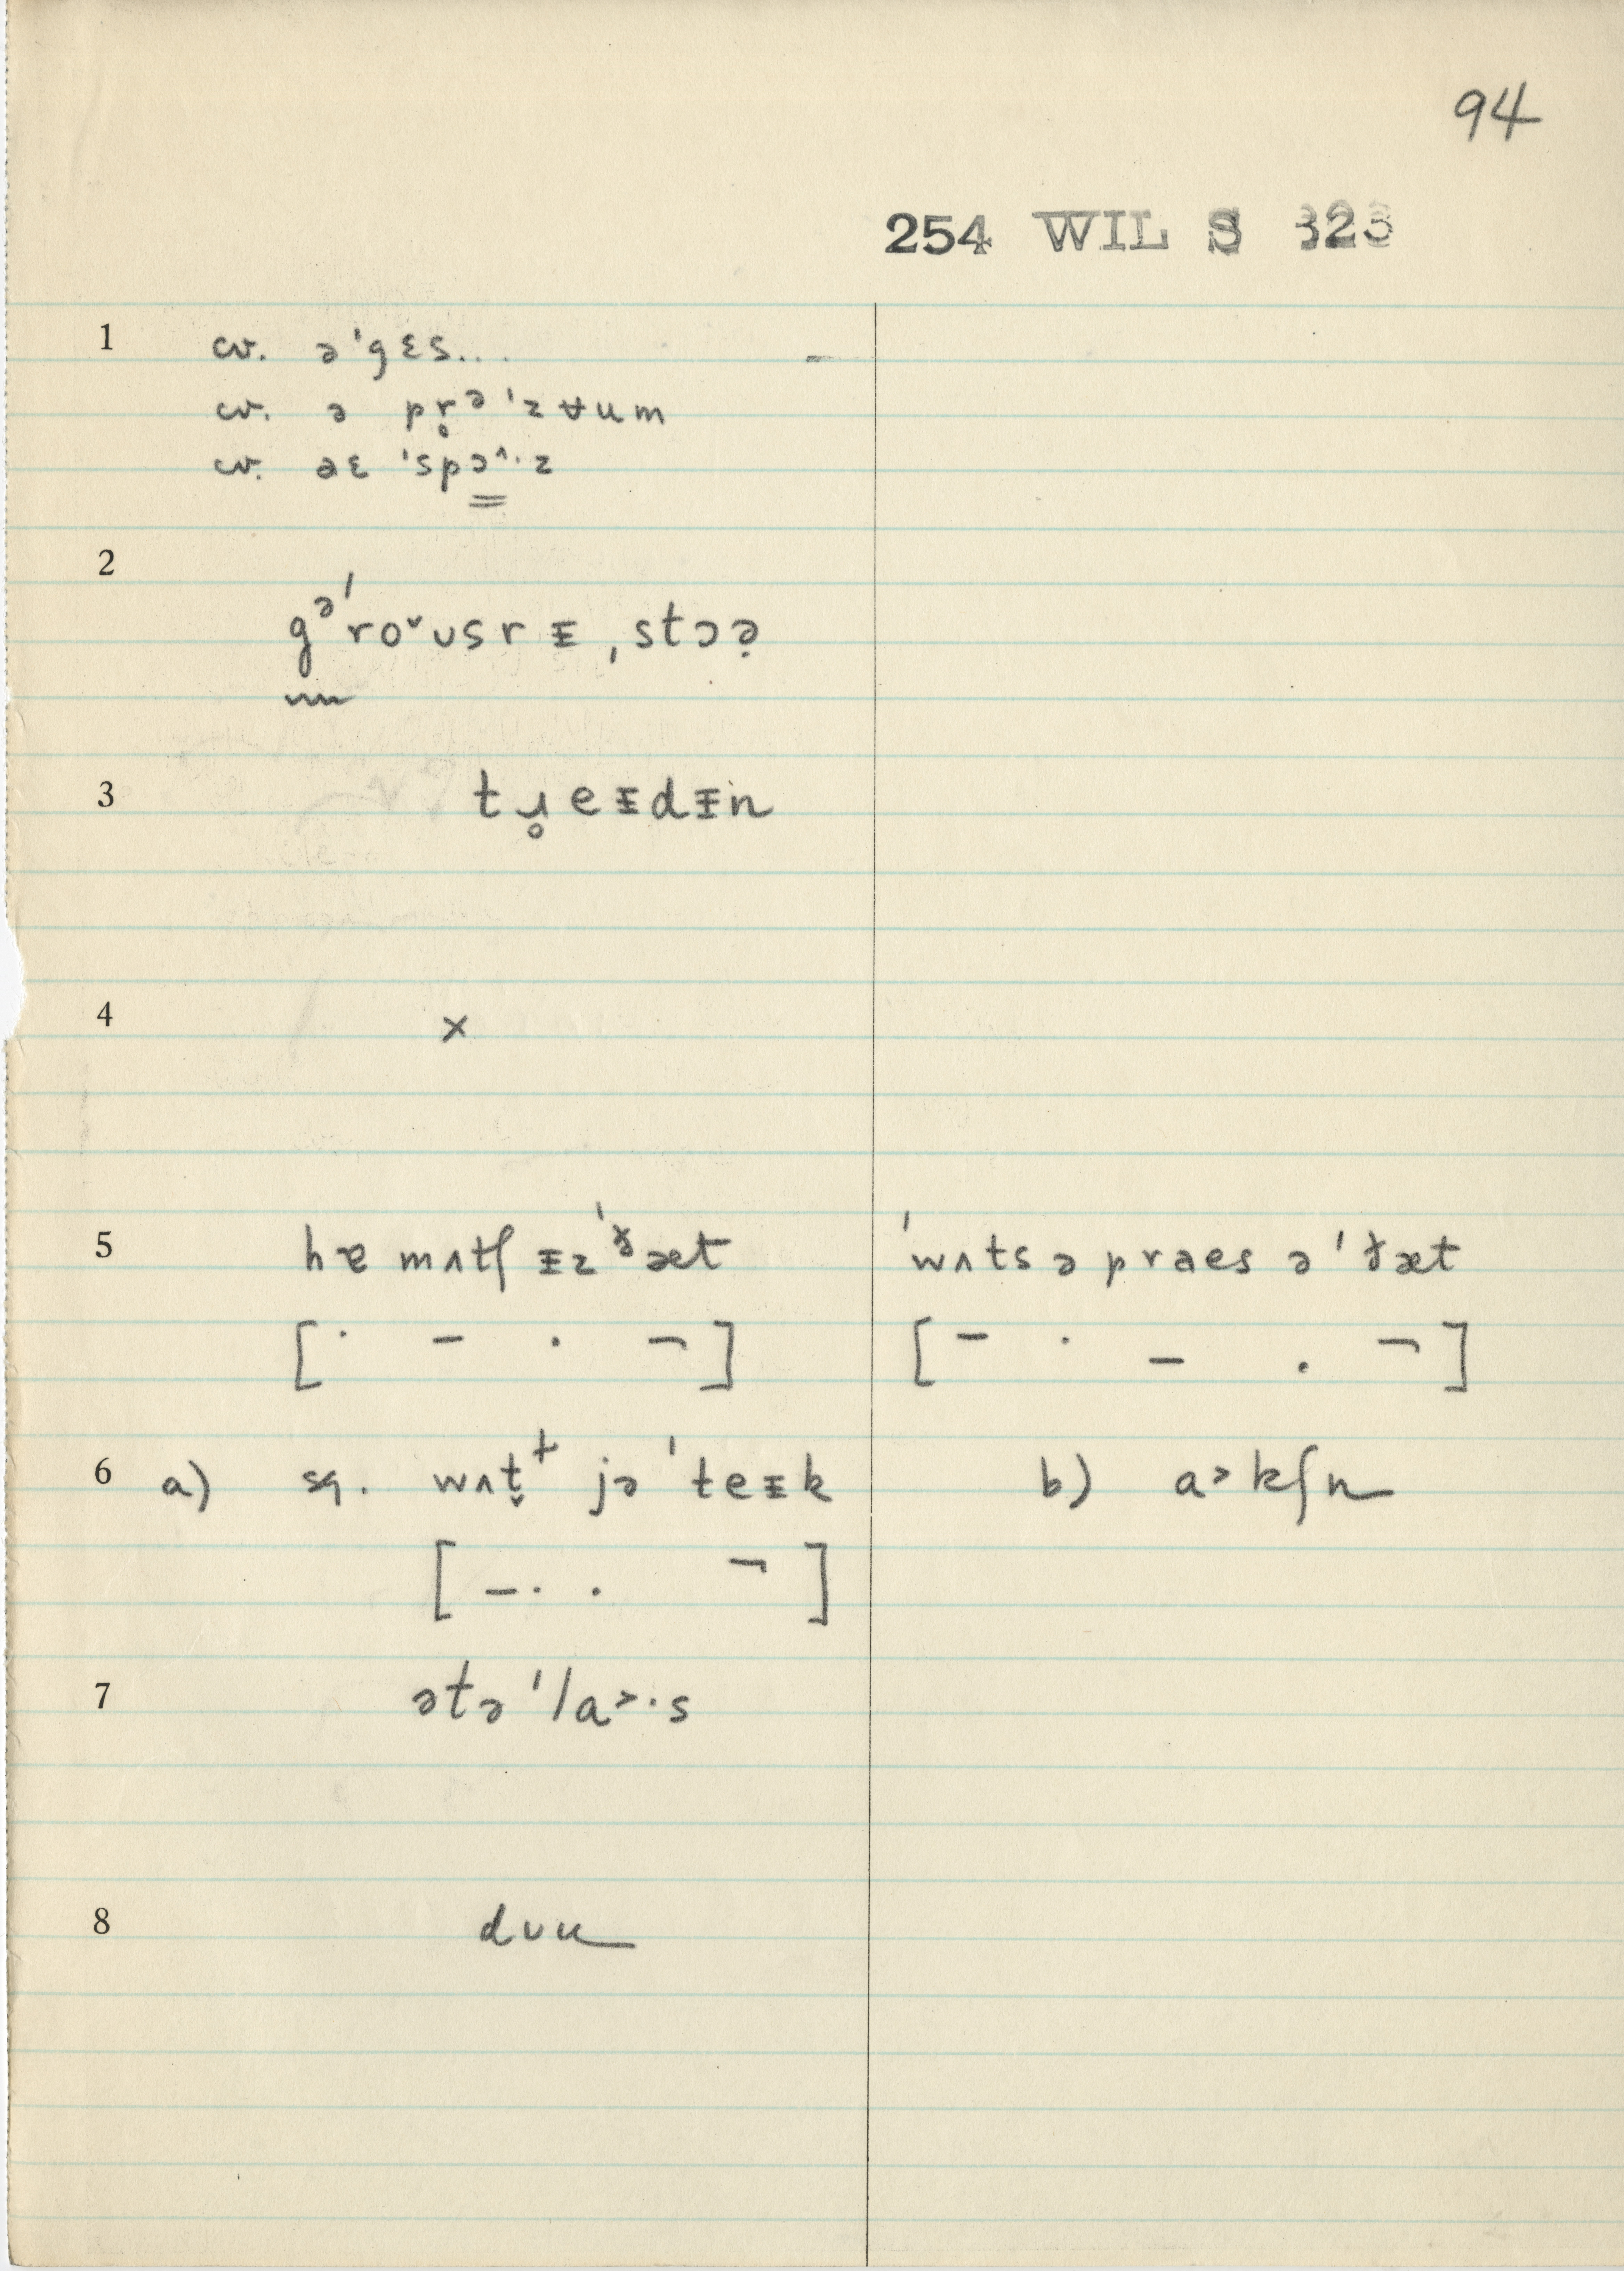 94
254 WIL S 323
1 cv. ə ˈgɛs...
cv. ə pr̥ᵊ ˈzʉum
cv. aɛ ˈspɔ^·z
2 gᵊˈroˇʊsrᵻ ˌstɔə̣
3 tɹ̥eᵻdᵻn
4 ×
5 hɐ mʌtʃ ᵻz ˈðæt ˈwʌts ə praes ə ˈðæt
[· – · ¬] [– · – · ¬]
6 a) sq. wʌt̬ jə ˈteᵻk b) a˃kʃn
[–· · ¬]
7 ətə ˈla˃·s
8 dʊu